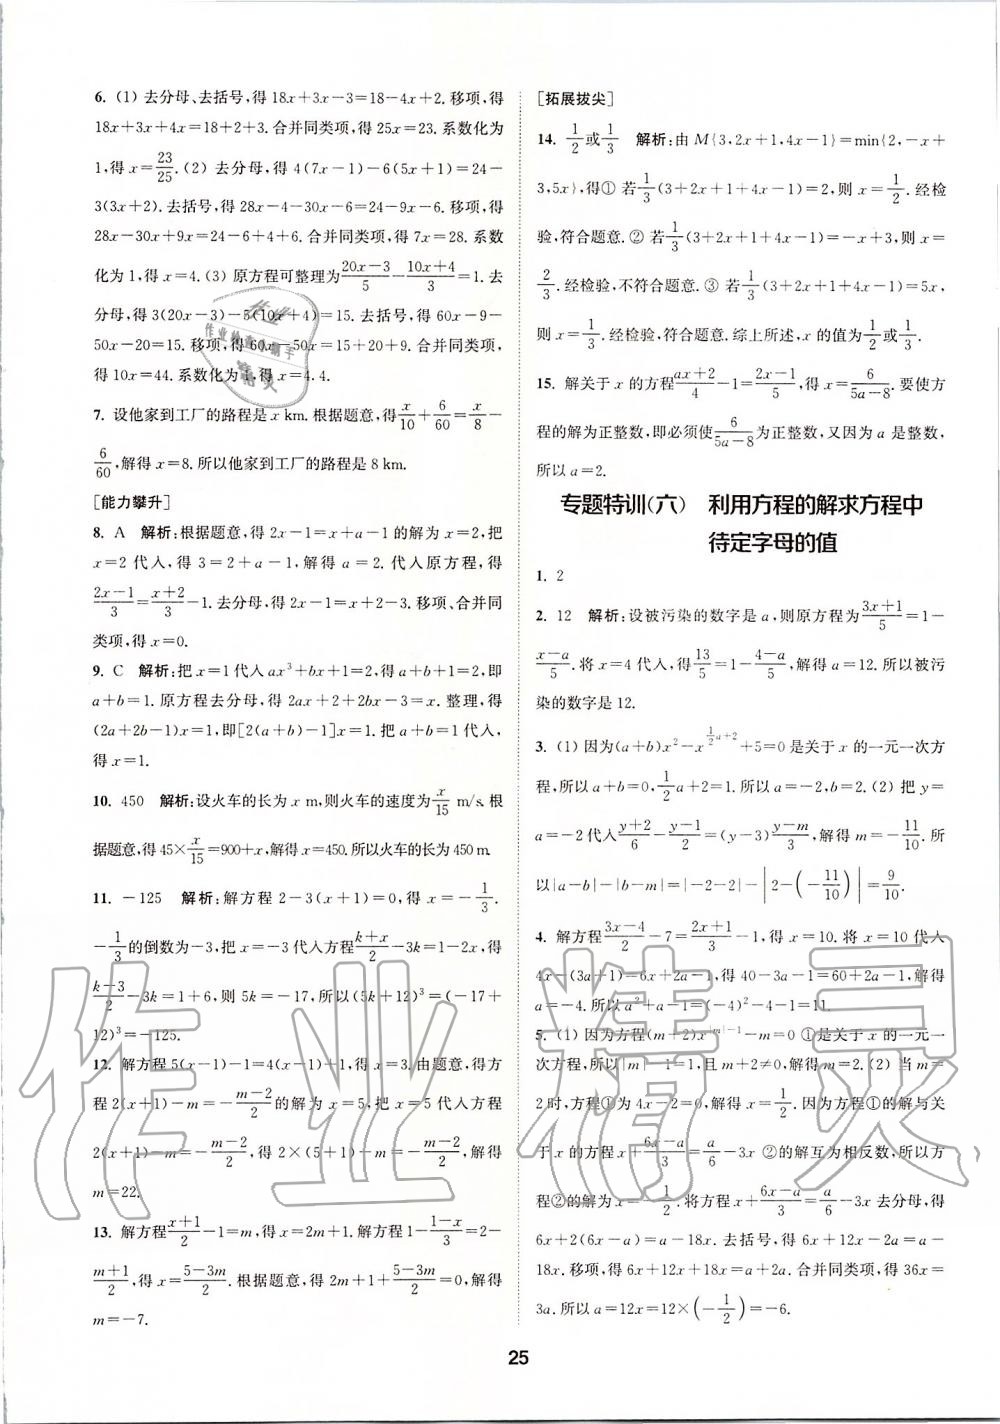 6. (1) 去分母、去括号,得 18x+3x−3=18−4x+2. 移项,得
18x+3x+4x=18+2+3. 合并同类项,得 25x=23. 系数化为
1,得 x=23/25. (2) 去分母,得 4(7x−1)−6(5x+1)=24−
3(3x+2). 去括号,得 28x−4−30x−6=24−9x−6. 移项,得
28x−30x+9x=24−6+4+6. 合并同类项,得 7x=28. 系数
化为 1,得 x=4. (3) 原方程可整理为(20x−3)/5−(10x+4)/3=1. 去
分母,得 3(20x−3)−5(10x+4)=15. 去括号,得 60x−9−
50x−20=15. 移项,得 60x−50x=15+20+9. 合并同类项,
得 10x=44. 系数化为 1,得 x=4.4.
7. 设他家到工厂的路程是 x km. 根据题意,得x/10+6/60=x/8−
6/60,解得 x=8. 所以他家到工厂的路程是 8 km.
[能力攀升]
8. A 解析:根据题意,得 2x−1=x+a−1 的解为 x=2,把
x=2 代入,得 3=2+a−1,解得 a=2. 代入原方程,得
(2x−1)/3=(x+2)/3−1. 去分母,得 2x−1=x+2−3. 移项、合并同
类项,得 x=0.
9. C 解析:把 x=1 代入 ax³+bx+1=2,得 a+b+1=2,即
a+b=1. 原方程去分母,得 2ax+2+2bx−3=x. 整理,得
(2a+2b−1)x=1,即[2(a+b)−1]x=1. 把 a+b=1 代入,
得 x=1.
10. 450 解析:设火车的长为 x m,则火车的速度为x/15 m/s. 根
据题意,得 45×x/15=900+x,解得 x=450. 所以火车的长为 450 m.
11. −125 解析:解方程 2−3(x+1)=0,得 x=−1/3.
−1/3的倒数为−3,把 x=−3 代入方程(k+x)/2−3k=1−2x,得
(k−3)/2−3k=1+6,则 5k=−17,所以(5k+12)³=(−17+
12)³=−125.
12. 解方程 5(x−1)−1=4(x−1)+1,得 x=3. 由题意,得方
程 2(x+1)−m=−(m−2)/2的解为 x=5,把 x=5 代入方程
2(x+1)−m=−(m−2)/2,得 2×(5+1)−m=−(m−2)/2,解得
m=22.
13. 解方程(x+1)/2−1=m,得 x=2m+1. 解方程 1−(1−x)/3=2−
(m+1)/2,得 x=(5−3m)/2. 根据题意,得 2m+1+(5−3m)/2=0,解得
m=−7.
[拓展拔尖]
14. 1/2或1/3 解析:由 M{3,2x+1,4x−1}=min{2,−x+
3,5x},得① 若1/3(3+2x+1+4x−1)=2,则 x=1/2. 经检
验,符合题意. ② 若1/3(3+2x+1+4x−1)=−x+3,则 x=
2/3. 经检验,不符合题意. ③ 若1/3(3+2x+1+4x−1)=5x,
则 x=1/3. 经检验,符合题意. 综上所述,x 的值为1/2或1/3.
15. 解关于 x 的方程(ax+2)/4−1=(2x−1)/5,得 x=6/(5a−8). 要使方
程的解为正整数,即必须使6/(5a−8)为正整数,又因为 a 是整数,
所以 a=2.
专题特训(六) 利用方程的解求方程中
待定字母的值
1. 2
2. 12 解析:设被污染的数字是 a,则原方程为(3x+1)/5=1−
(x−a)/5. 将 x=4 代入,得13/5=1−(4−a)/5,解得 a=12. 所以被污
染的数字是 12.
3. (1) 因为(a+b)x²−x^(1/2 a+2)+5=0 是关于 x 的一元一次方
程,所以 a+b=0,1/2a+2=1. 所以 a=−2,b=2. (2) 把 y=
a=−2 代入(y+2)/6−(y−1)/2=(y−3)(y−m)/3,解得 m=−11/10. 所
以|a−b|−|b−m|=|−2−2|−|2−(−11/10)|=9/10.
4. 解方程(3x−4)/2−7=(2x+1)/3−1,得 x=10. 将 x=10 代入
4x−(3a+1)=6x+2a−1,得 40−3a−1=60+2a−1,解得
a=−4. 所以 a²+a−1=(−4)²−4−1=11.
5. (1) 因为方程(m+2)x^(|m|−1)−m=0 ①是关于 x 的一元一
次方程,所以|m|−1=1,且 m+2≠0,解得 m=2. (2) 当 m=
2时,方程①为 4x−2=0,解得 x=1/2. 因为方程①的解与关
于 x 的方程 x+(6x−a)/3=a/6−3x ②的解互为相反数,所以方
程②的解为 x=−1/2. 将方程 x+(6x−a)/3=a/6−3x 去分母,得
6x+2(6x−a)=a−18x. 去括号,得 6x+12x−2a=a−
18x. 移项,得 6x+12x+18x=a+2a. 合并同类项,得 36x=
3a. 所以 a=12x=12×(−1/2)=−6.
25
作业精灵